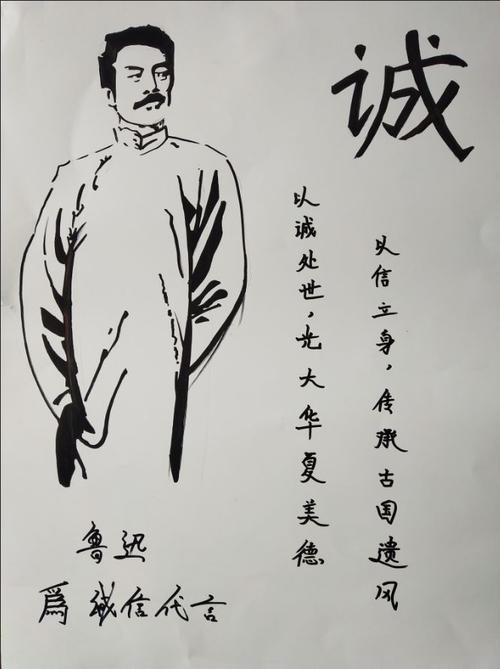 诚
以信立身，传承古国遗风
以诚处世，光大华夏美德
鲁迅
為诚信代言